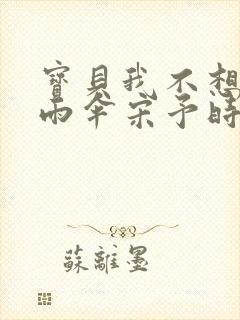 寶貝我不想
雨傘宋予時
蘇離墨